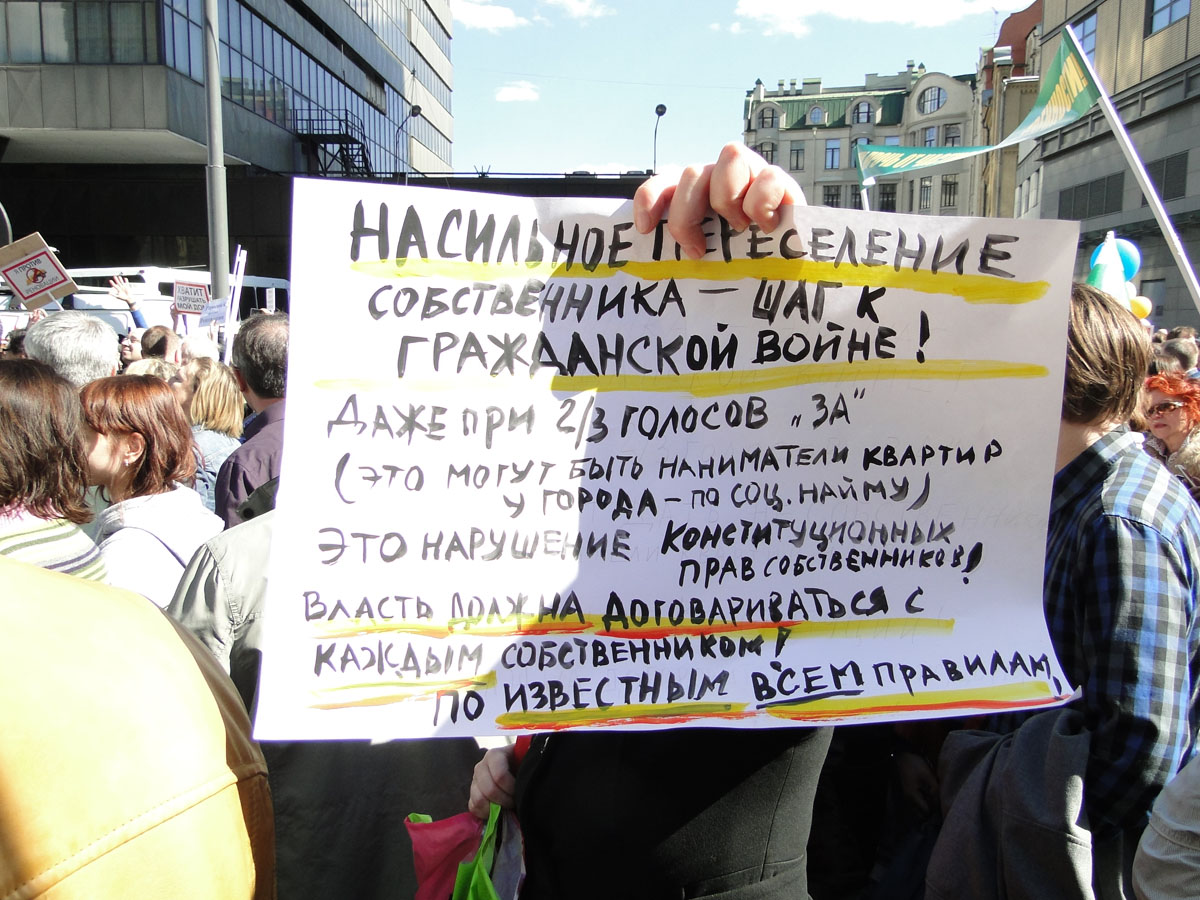 НАСИЛЬНОЕ ПЕРЕСЕЛЕНИЕ
СОБСТВЕННИКА – ШАГ К
ГРАЖДАНСКОЙ ВОЙНЕ!
ДАЖЕ ПРИ 2/3 ГОЛОСОВ „ЗА“
(ЭТО МОГУТ БЫТЬ НАНИМАТЕЛИ КВАРТИР
У ГОРОДА – ПО СОЦ. НАЙМУ)
ЭТО НАРУШЕНИЕ КОНСТИТУЦИОННЫХ
ПРАВ СОБСТВЕННИКОВ!
ВЛАСТЬ ДОЛЖНА ДОГОВАРИВАТЬСЯ С
КАЖДЫМ СОБСТВЕННИКОМ!
ПО ИЗВЕСТНЫМ ВСЕМ ПРАВИЛАМ,
Я ПРОТИВ
ХВАТИТ
РАЗРУШАТЬ
МОЙ ДОМ